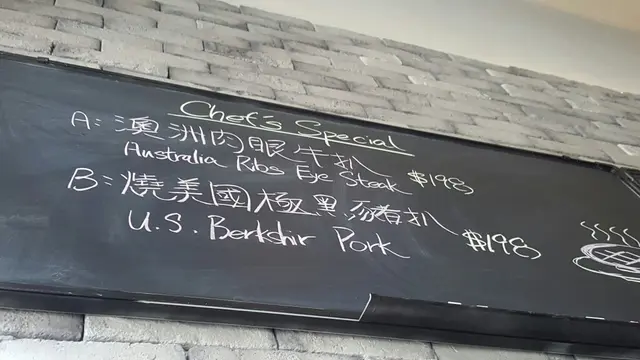 Chef's Special
A: 澳洲肉眼牛扒
Australia Ribs Eye Steak $198
B: 燒美國極黑豚豬扒
U.S. Berkshir Pork $198